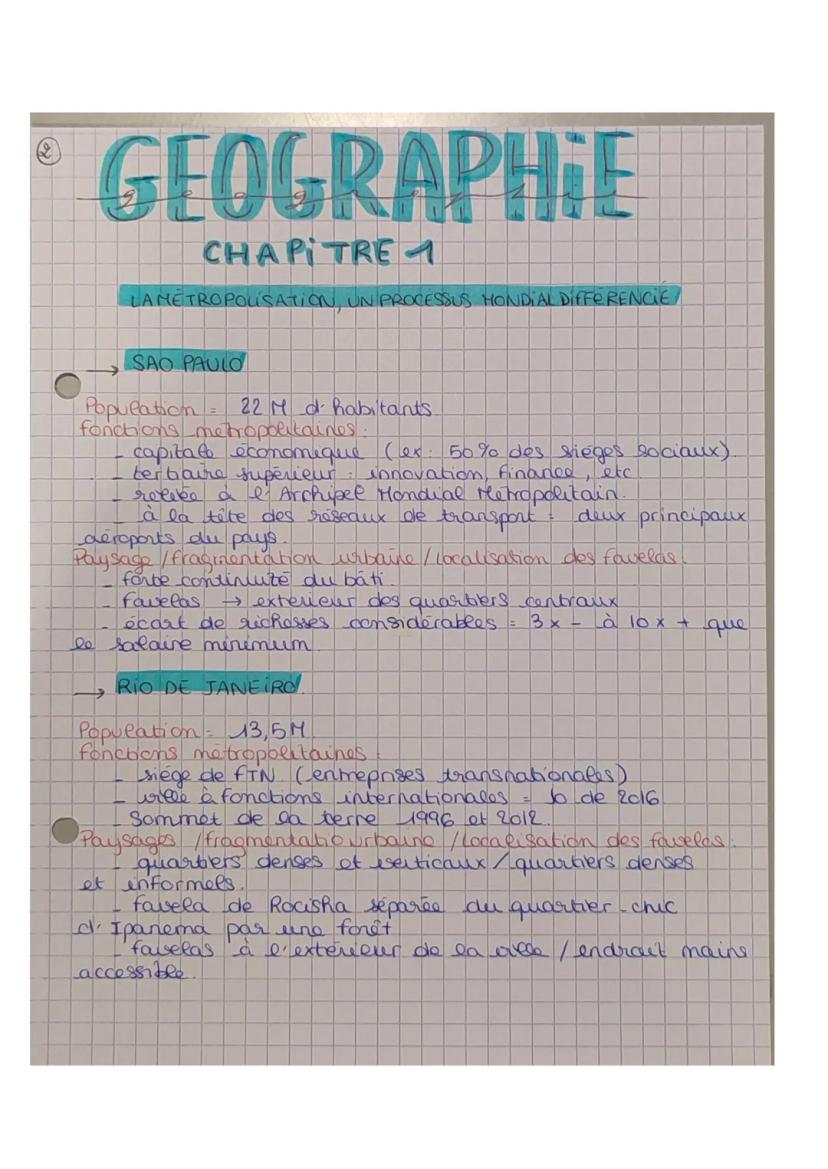 2
GEOGRAPHiE
geographie
CHAPiTRE 1
LA MÉTROPOLISATION, UN PROCESSUS MONDIAL DIFFÉRENCIÉ
→ SAO PAULO
Population = 22 M d'habitants.
fonctions metropolitaines :
- capitale économique (ex : 50% des sièges sociaux).
- tertiaire supérieur : innovation, finance, etc
- reliée à l'Archipel Mondial Métropolitain.
- à la tête des réseaux de transport = deux principaux
aéroports du pays.
Paysage / fragmentation urbaine / localisation des favelas :
- forte continuité du bâti.
- favelas → exterieur des quartiers centraux
- écart de richesses considérables = 3x - à 10x + que
le salaire minimum.
→ RiO DE JANEiRO.
Population = 13,5M
fonctions métropolitaines :
- siège de FTN. (entreprises transnationales)
- ville à fonctions internationales = Jo de 2016
- Sommet de la terre 1996 et 2012.
Paysages / fragmentatio urbaine / Localisation des favelas :
- quartiers denses et verticaux / quartiers denses
et informels.
- favela de Rocisha séparée du quartier-chic
d'Ipanema par une forêt
- favelas à l'extérieur de la ville / endrait mains
accessible.